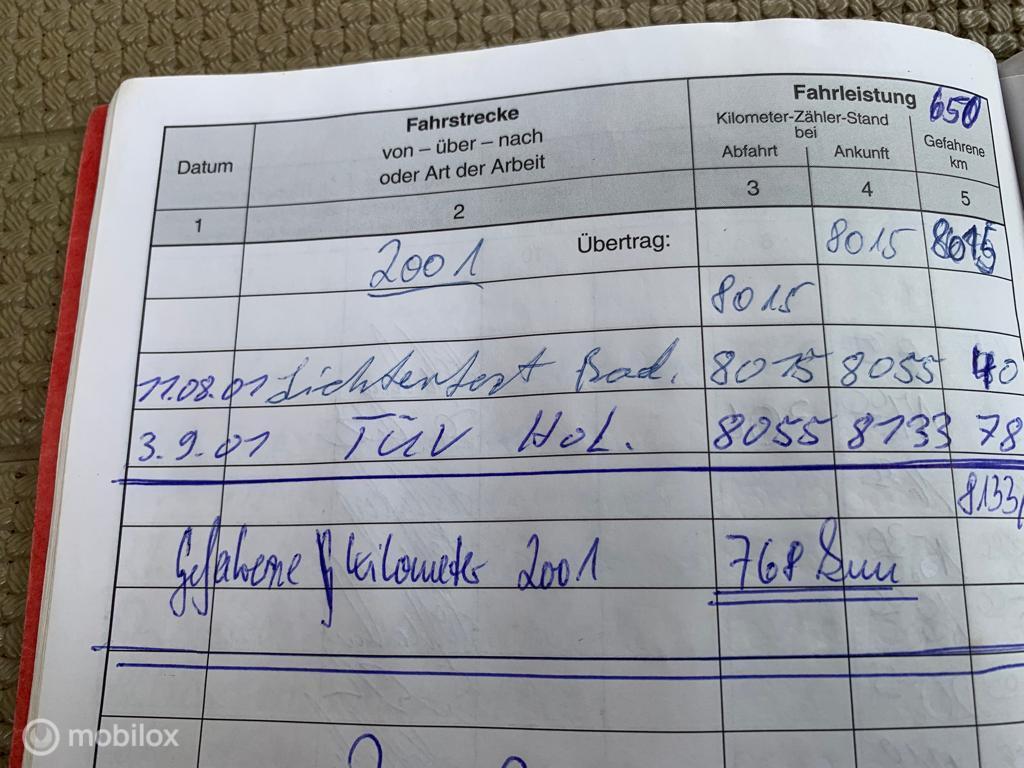 Datum Fahrstrecke von – über – nach oder Art der Arbeit Fahrleistung 650
Kilometer-Zähler-Stand bei
Abfahrt Ankunft Gefahrene km
1 2 3 4 5
2001 Übertrag: 8015 8015
8015
11.08.01 Bad. 8015 8055 40
3.9.01 TÜV Hol. 8055 8133 78
8133
Gefahrene Kilometer 2001 768
mobilox